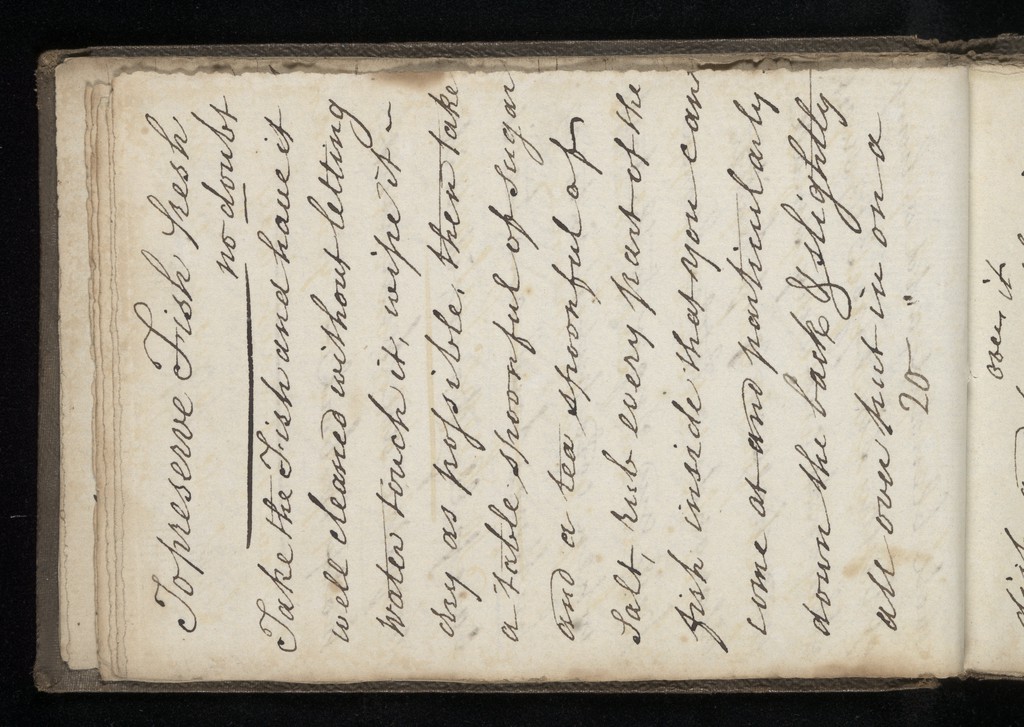 To preserve Fish fresh
no doubt
Take the Fish and have it
well cleaned without letting
water touch it, wipe it -
dry as possible, then take
a table spoonful of sugar
and a tea spoonful of
Salt, rub every part of the
fish inside that you can
come at and particularly
down the back & slightly
all over put in on a
20
over it